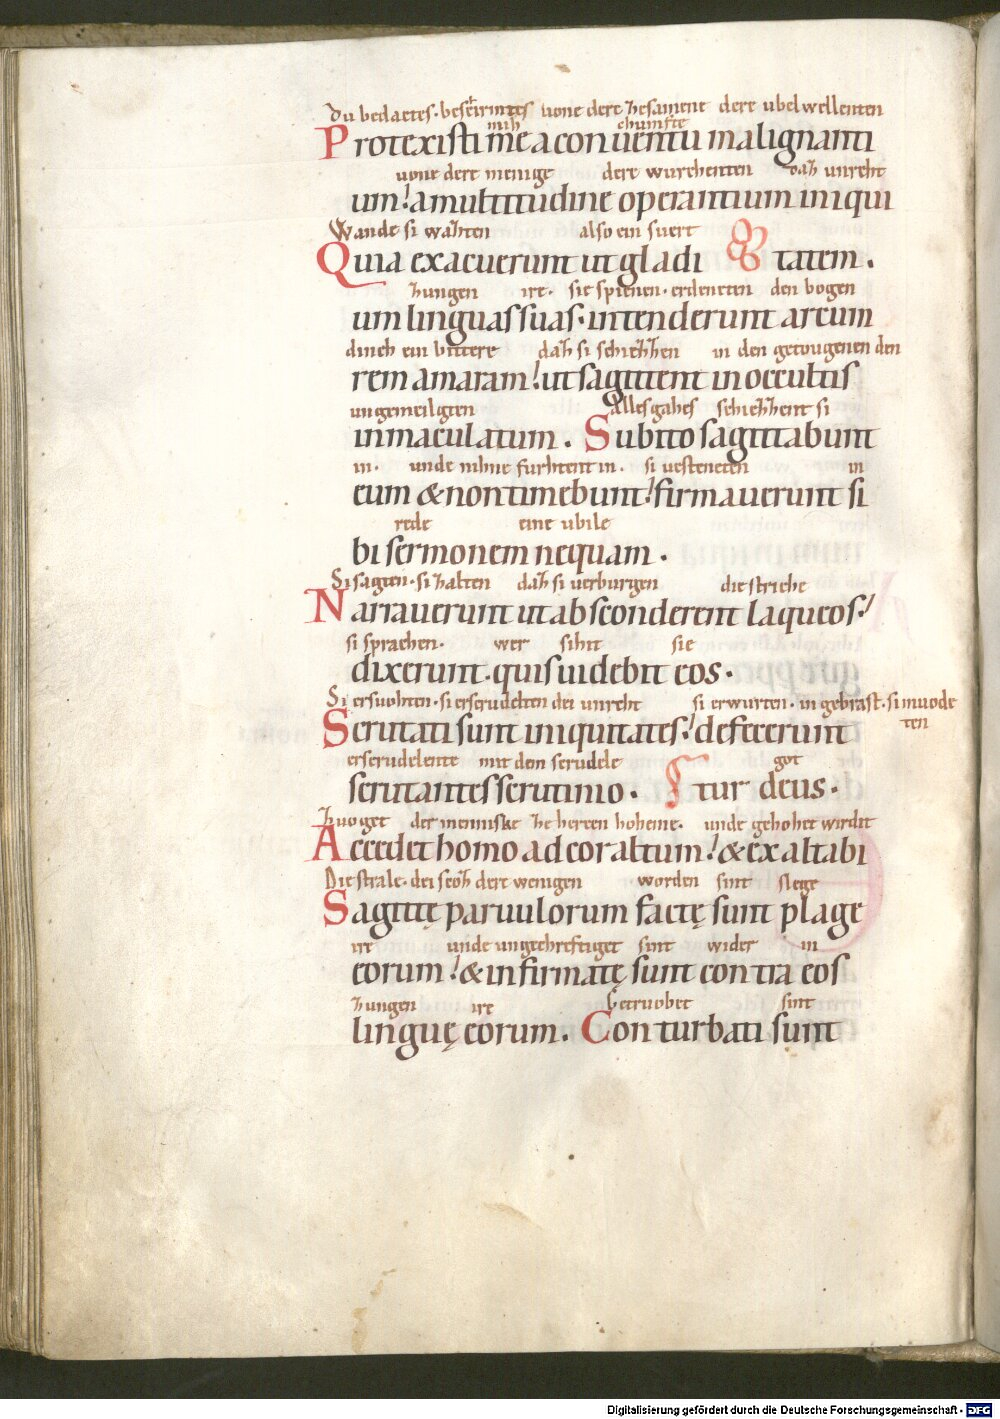 Du bedactes · beschirmtes uone dere zesamene dere ubelwellenten
mih chumfte
Protexisti me a conuentu malignanti
uone dere menige dere wurchenten daz unreht
um! a multitudine operantium iniqui
Wande si wazten also ein suert
Quia exacuerunt ut gladi tatem.
zungen ire · sie spienen · erdeneten den bogen
um linguas suas · intenderunt arcum
dinch ein bittere daz si schiezzen in den getougenen den
rem amaram! ut sagittent in occultis
ungemeilgten Alles gahes schiezzent si
inmaculatum. Subito sagittabunt
in · unde nihne furhtent in · si uesteneten in
eum & non timebunt! firmauerunt si
rede eine ubile
bi sermonem nequam.
Si sagten · si zalten daz si uerburgen die striche
Narrauerunt ut absconderent laqueos!
si sprachen · wer sihit sie
dixerunt · quis uidebit eos.
Si ersuohten · si erscrudelten dei unreht si erwurten · in gebrast · si muode
ten
Scrutati sunt iniquitates! defecerunt
erscrudelente mit dem scrudele got
scrutantes scrutinio. tur deus.
Zuo get der menniske ze herzen hoheme · unde gehohet wirdit
Accedet homo ad cor altum! & exaltabi
Die strale · dei scoz dere wenigen worden sint slege
Sagittę paruulorum factę sunt plagę
ire unde ungechreftiget sint wider in
eorum! & infirmatę sunt contra eos
zungen ire Getruobet sint
linguę eorum. Conturbati sunt
Digitalisierung gefördert durch die Deutsche Forschungsgemeinschaft - DFG